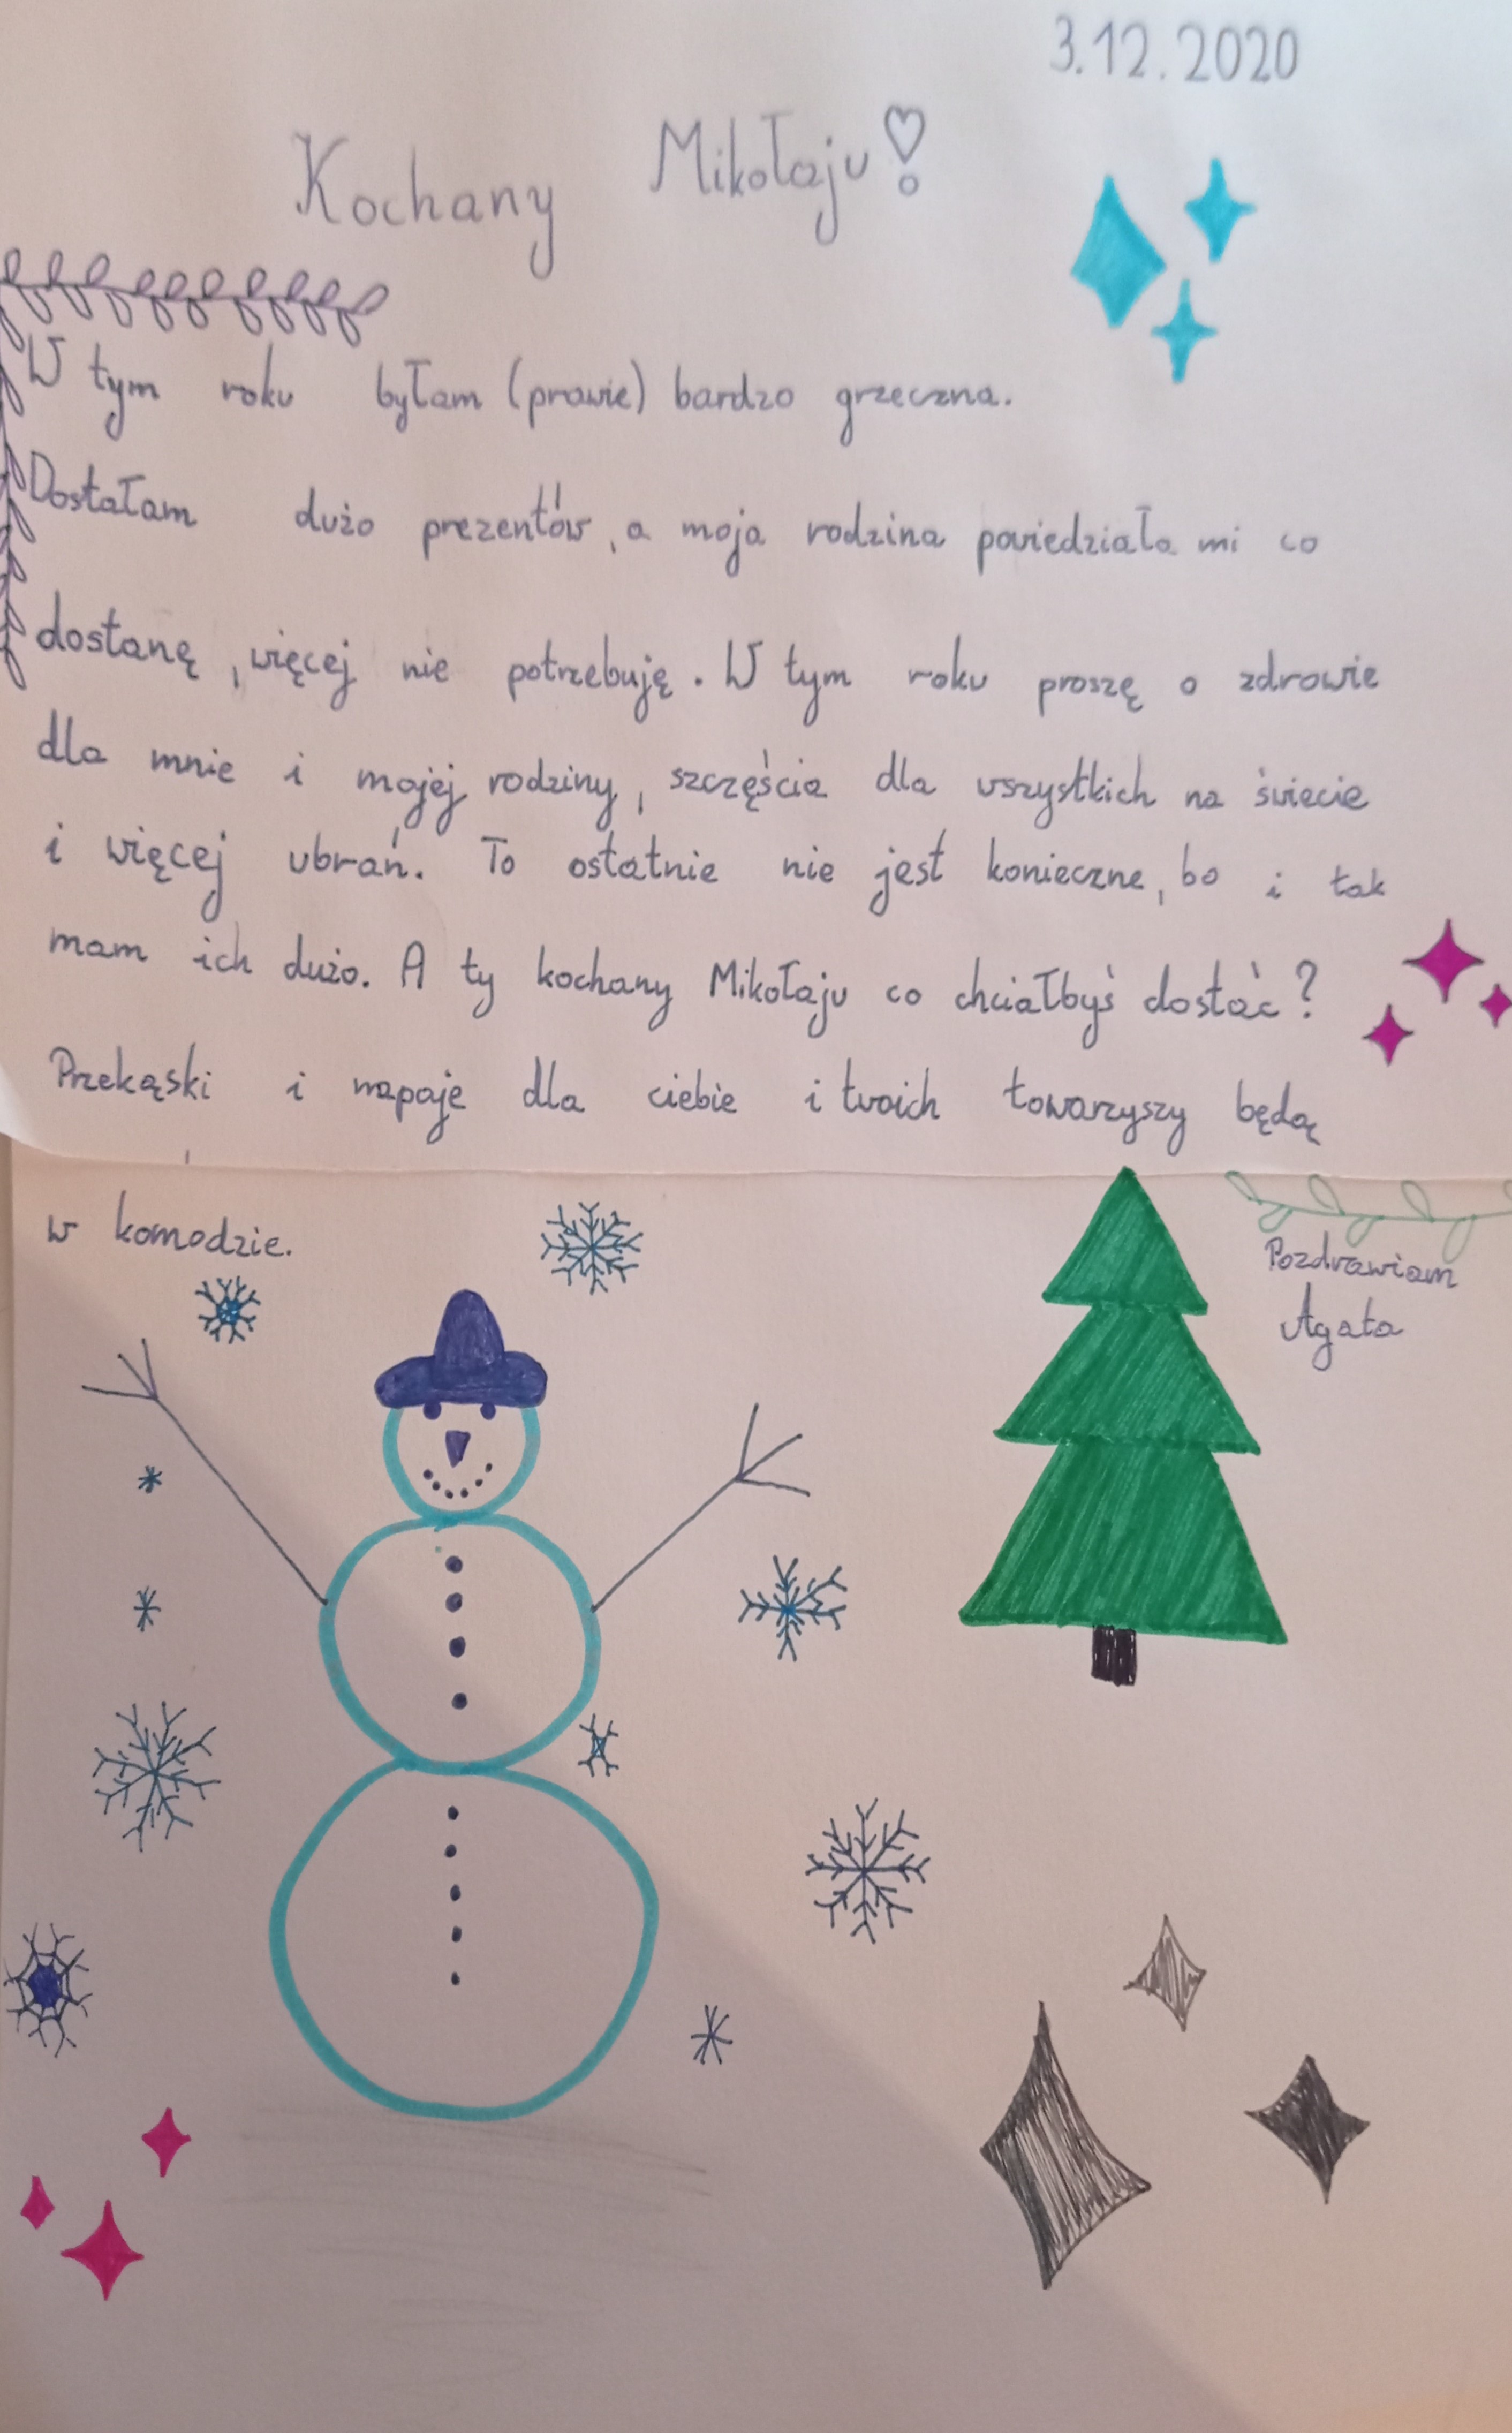 3.12.2020
Kochany Mikołaju!
W tym roku byłam (prawie) bardzo grzeczna.
Dostałam dużo prezentów, a moja rodzina powiedziała mi co
dostanę, więcej nie potrzebuję. W tym roku proszę o zdrowie
dla mnie i mojej rodziny, szczęścia dla wszystkich na świecie
i więcej ubrań. To ostatnie nie jest konieczne, bo i tak
mam ich dużo. A ty kochany Mikołaju co chciałbyś dostać?
Przekąski i napoje dla ciebie i twoich towarzyszy będą
w komodzie.
Pozdrawiam
Agata